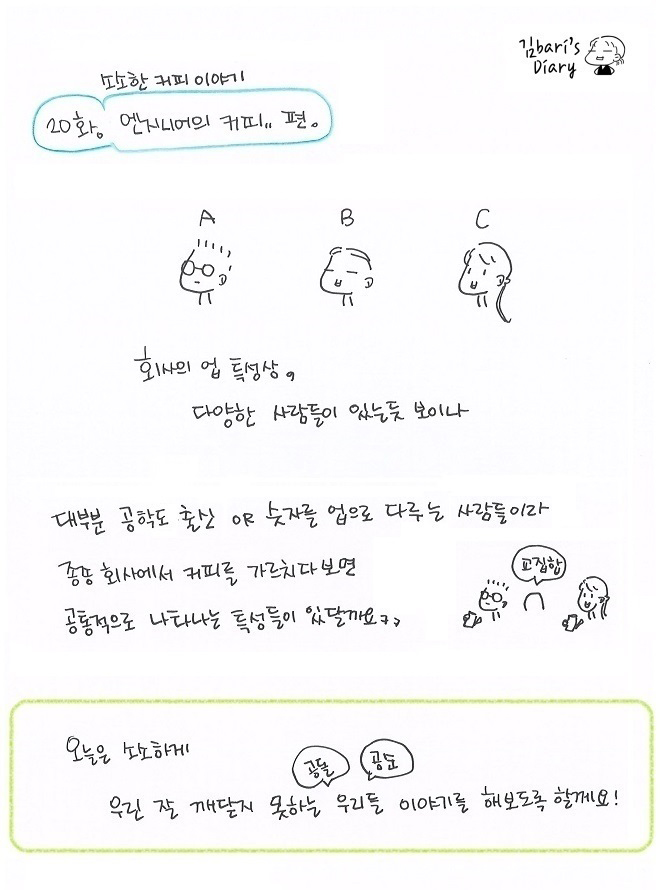 김bari's
Diary
소소한 커피 이야기
20화. 엔지니어의 커피.. 편.
A B C
회사의 업 특성상,
다양한 사람들이 있는듯 보이나
대부분 공학도 출신 OR 숫자를 업으로 다루는 사람들이라
종종 회사에서 커피를 가르치다보면
교집합
공통적으로 나타나는 특성들이 있달까요ㅋㅋ
오늘은 소소하게
공돌 공순
우린 잘 깨닫지 못하는 우리들 이야기를 해보도록 할께요!